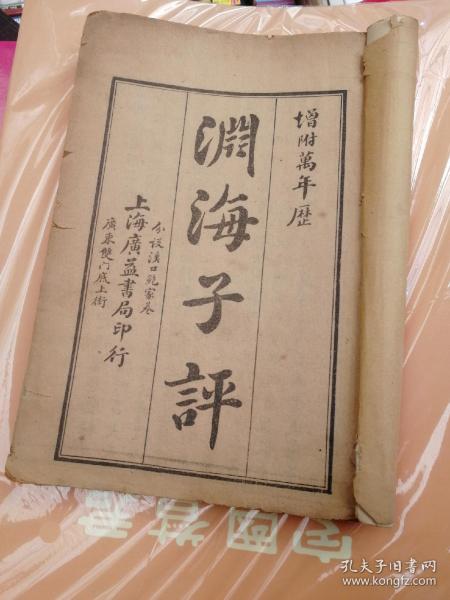 增附萬年歷
淵海子評
分設漢口鮑家巷
上海廣益書局印行
廣東雙门底上街
孔夫子旧书网
www.kongfz.com